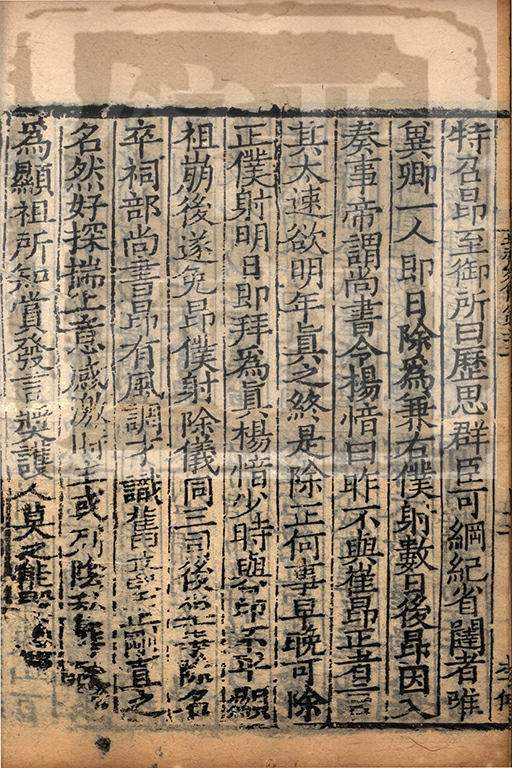 特召昂至御所曰歷思群臣可綱紀省闥者唯
冀卿一人即日除為兼右僕射數日後昂因入
奏事帝謂尚書令楊愔曰昨不與崔昂正者言
其太速欲明年真之終是除正何事早晚可除
正僕射明日即拜為真楊愔少時與昂不平顯
祖崩後遂免昂僕射除儀同三司後
卒祠部尚書昂有風調才識舊立堅正剛直之
名然好探揣上意感激時主或列陰私
為顯祖所知賞發言獎護人莫之能毀